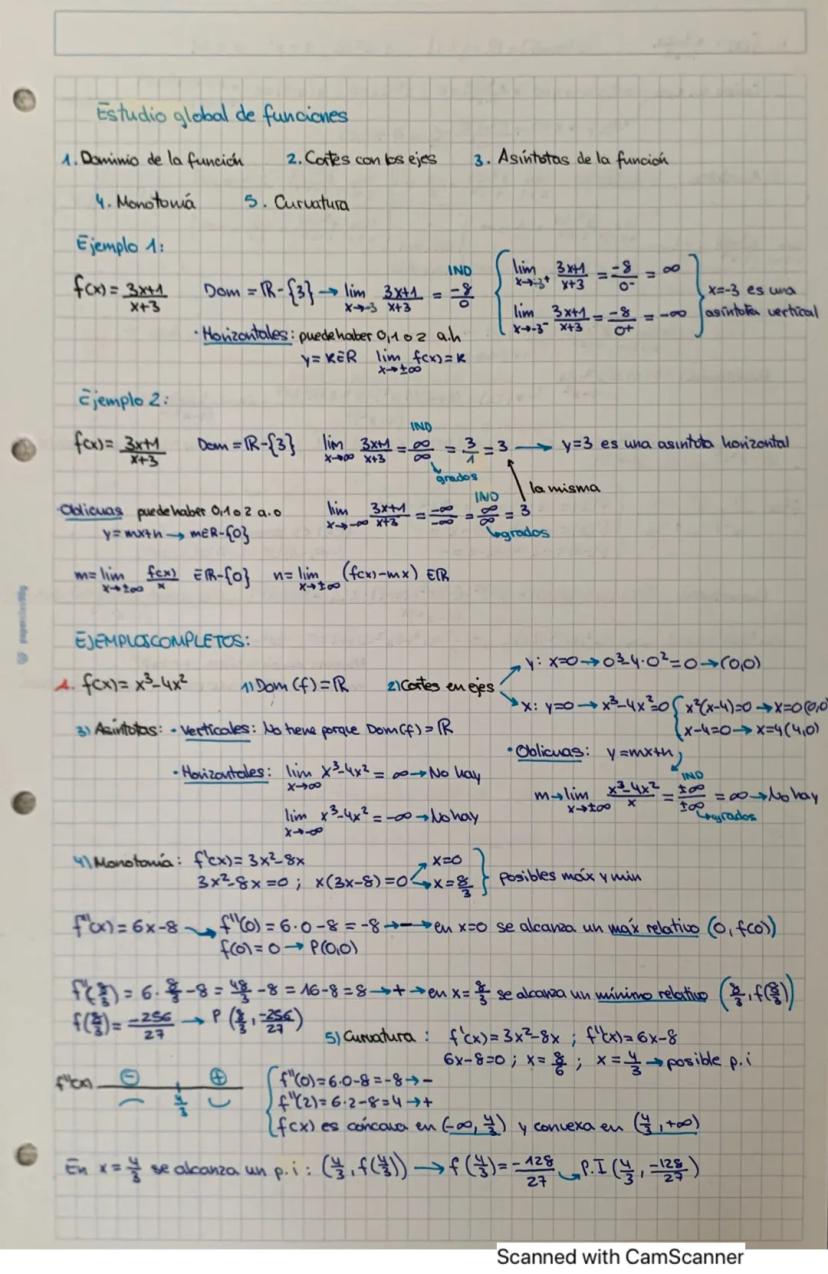 Estudio global de funciones
1. Dominio de la función 2. Cortes con los ejes 3. Asíntotas de la función
4. Monotonía 5. Curvatura
Ejemplo 1:
f(x) = 3x+1/x+3 Dom = ℝ-{3} → lim x→-3 3x+1/x+3 = -8/0 IND { lim x→-3⁺ 3x+1/x+3 = -8/0⁻ = ∞
lim x→-3⁻ 3x+1/x+3 = -8/0⁺ = -∞ } x=-3 es una asíntota vertical
· Horizontales: puede haber 0,1 o 2 a.h
y = K∈ℝ lim x→±∞ f(x) = K
Ejemplo 2:
f(x) = 3x+1/x+3 Dom = ℝ-{3} lim x→∞ 3x+1/x+3 = ∞/∞ IND = 3/1 = 3 → y=3 es una asíntota horizontal
grados
la misma
Oblicuas puede haber 0,1 o 2 a.o lim x→-∞ 3x+1/x+3 = -∞/-∞ = ∞/∞ IND = 3
y = mx+n → m∈ℝ-{0} grados
m = lim x→±∞ f(x)/x ∈ℝ-{0} n = lim x→±∞ (f(x)-mx) ∈ℝ
EJEMPLOS COMPLETOS:
1. f(x) = x³-4x² 1) Dom (f) = ℝ 2) Cortes en ejes
y: x=0 → 0³-4·0² = 0 → (0,0)
x: y=0 → x³-4x²=0 { x²(x-4)=0 → x=0 (0,0
x-4=0 → x=4 (4,0)
3) Asíntotas: · Verticales: No tiene porque Dom(f) = ℝ
· Horizontales: lim x→∞ x³-4x² = ∞ → No hay
lim x→-∞ x³-4x² = -∞ → No hay
· Oblicuas: y = mx+n
m → lim x→±∞ x³-4x²/x = ±∞/±∞ IND = ∞ → No hay
grados
4) Monotonía: f'(x) = 3x²-8x
3x²-8x = 0 ; x(3x-8) = 0 x=0 x=8/3 } posibles máx y min
f''(x) = 6x-8 → f''(0) = 6·0-8 = -8 → - → en x=0 se alcanza un máx relativo (0, f(0))
f(0) = 0 → P(0,0)
f''(8/3) = 6·8/3-8 = 48/3-8 = 16-8 = 8 → + → en x=8/3 se alcanza un mínimo relativo (8/3, f(8/3))
f(8/3) = -256/27 → P (8/3, -256/27)
5) Curvatura: f'(x) = 3x²-8x ; f''(x) = 6x-8
6x-8=0 ; x=8/6 ; x=4/3 → posible p.i
f''(x) - + 4/3
{ f''(0) = 6·0-8 = -8 → -
f''(2) = 6·2-8 = 4 → +
f(x) es cóncava en (-∞, 4/3) y convexa en (4/3, +∞)
En x = 4/3 se alcanza un p.i : (4/3, f(4/3)) → f(4/3) = -128/27 → P.I (4/3, -128/27)
Scanned with CamScanner